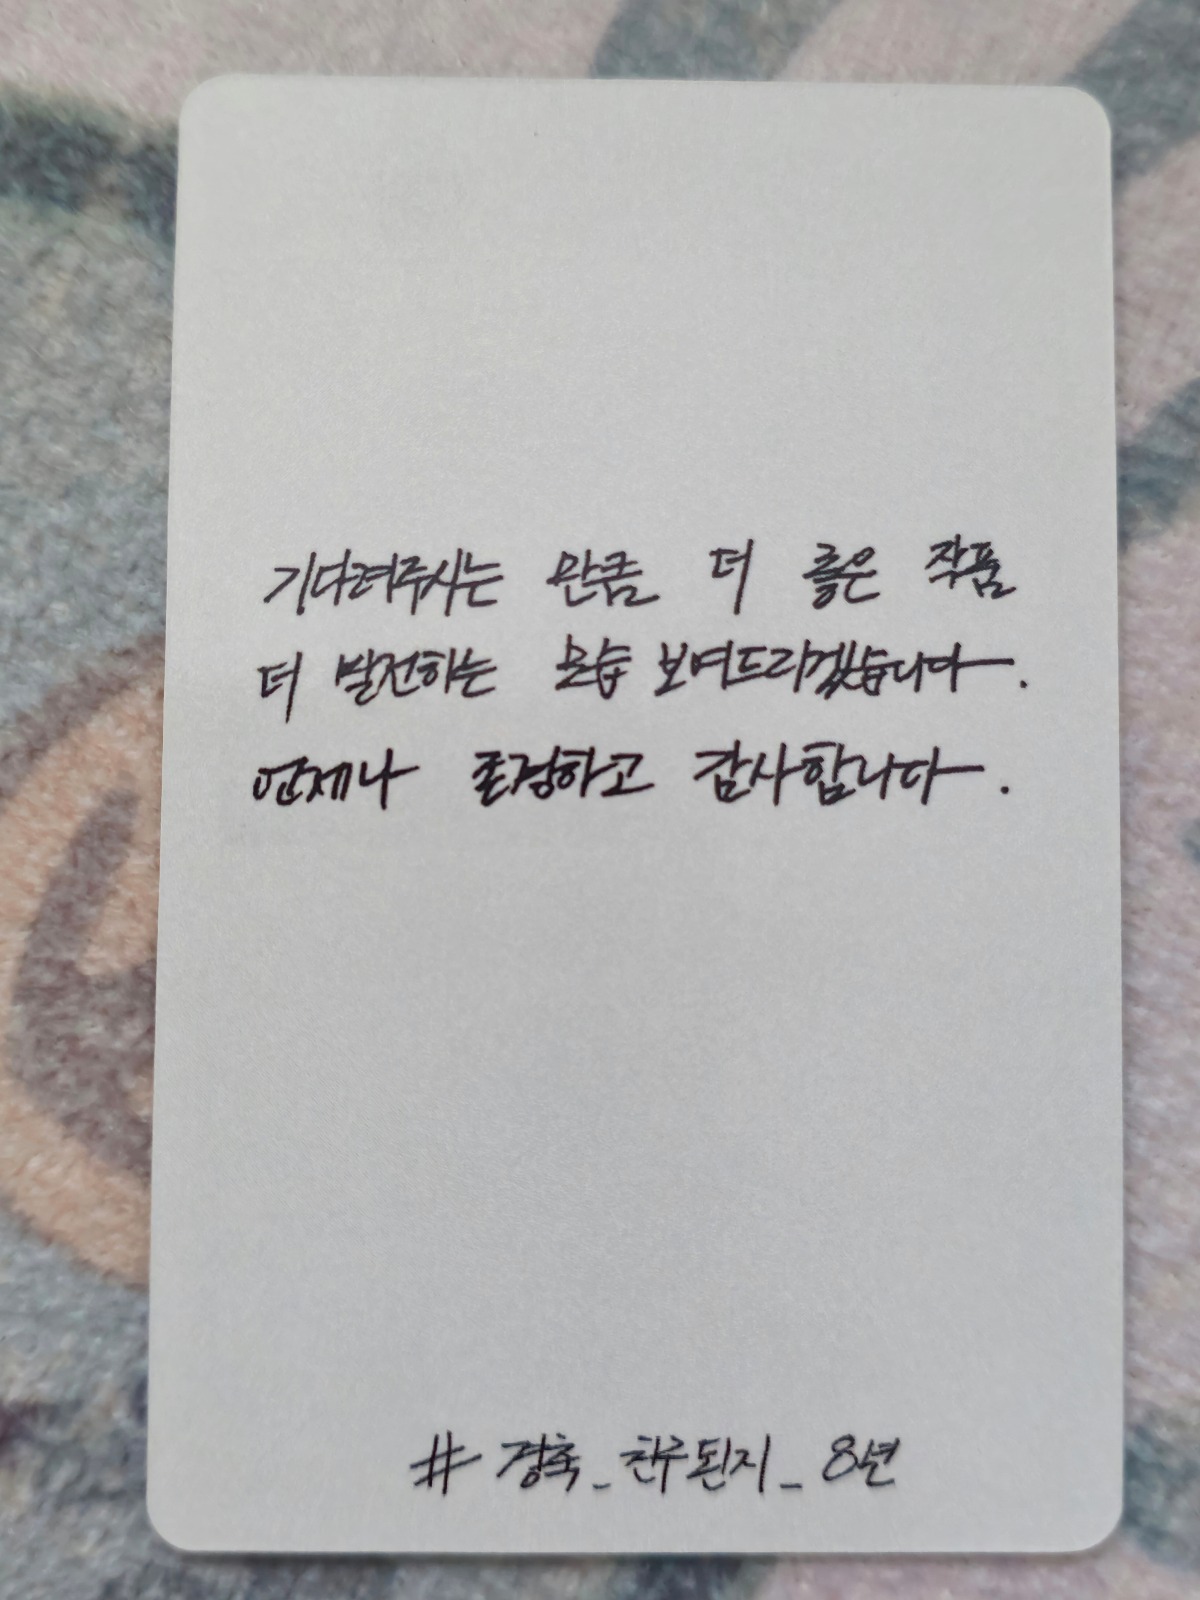 기다려주시는 만큼 더 좋은 작품
더 발전하는 모습 보여드리겠습니다.
언제나 존경하고 감사합니다.
# 경축_친구된지_8년